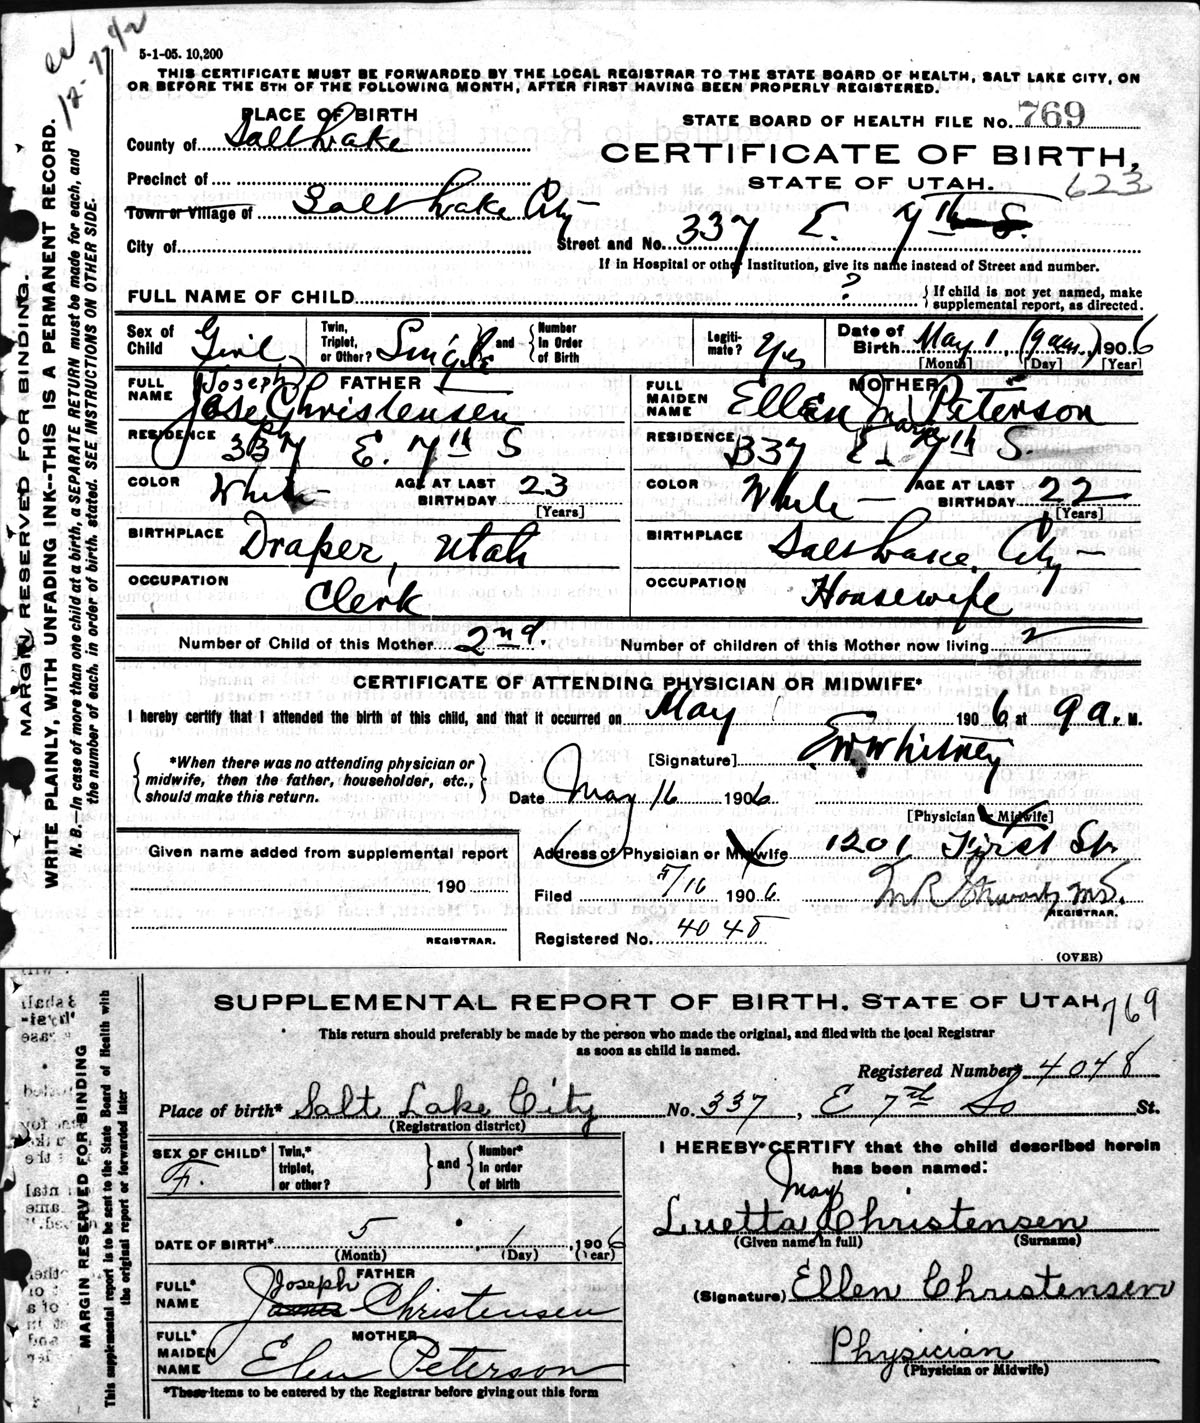 ee
12-7-42
5-1-05. 10,200
THIS CERTIFICATE MUST BE FORWARDED BY THE LOCAL REGISTRAR TO THE STATE BOARD OF HEALTH, SALT LAKE CITY, ON
OR BEFORE THE 5TH OF THE FOLLOWING MONTH, AFTER FIRST HAVING BEEN PROPERLY REGISTERED.
MARGIN RESERVED FOR BINDING.
WRITE PLAINLY, WITH UNFADING INK--THIS IS A PERMANENT RECORD.
N. B.—In case of more than one child at a birth, a SEPARATE RETURN must be made for each, and
the number of each, in order of birth, stated. SEE INSTRUCTIONS ON OTHER SIDE.
PLACE OF BIRTH
County of Salt Lake
Precinct of
Town or Village of Salt Lake City
City of
STATE BOARD OF HEALTH FILE No. 769
CERTIFICATE OF BIRTH,
STATE OF UTAH. 623
Street and No. 337 E. 7th S.
If in Hospital or other Institution, give its name instead of Street and number.
FULL NAME OF CHILD ? { If child is not yet named, make supplemental report, as directed.
Sex of Child Girl Twin, Triplet, or Other? Single and Number In Order of Birth Legitimate? Yes Date of Birth May 1 (9 am) 1906
[Month] [Day] [Year]
FULL NAME FATHER Joseph Jose Christensen
RESIDENCE 337 E. 7th S
COLOR White AGE AT LAST BIRTHDAY 23
[Years]
BIRTHPLACE Draper, Utah
OCCUPATION Clerk
FULL MAIDEN NAME MOTHER Ellen Peterson
RESIDENCE 337 E. 7th S.
COLOR White AGE AT LAST BIRTHDAY 22
[Years]
BIRTHPLACE Salt Lake City
OCCUPATION Housewife
Number of Child of this Mother 2nd. Number of children of this Mother now living 2
CERTIFICATE OF ATTENDING PHYSICIAN OR MIDWIFE*
I hereby certify that I attended the birth of this child, and that it occurred on May 1 1906 at 9 a. M.
*When there was no attending physician or
midwife, then the father, householder, etc.,
should make this return.
[Signature] E W Whitney
Date May 16 1906
[Physician or Midwife]
Given name added from supplemental report
190
REGISTRAR.
Address of Physician or Midwife 1201 First St.
Filed 5/16 1906
REGISTRAR.
Registered No. 4048
(OVER)
MARGIN RESERVED FOR BINDING
This supplemental report is to be sent to the State Board of Health with
the original report or forwarded later
SUPPLEMENTAL REPORT OF BIRTH, STATE OF UTAH 769
This return should preferably be made by the person who made the original, and filed with the local Registrar
as soon as child is named.
Registered Number 4048
Place of birth* Salt Lake City No. 337, E 7rd So St.
(Registration district)
SEX OF CHILD* F. Twin,* triplet, or other? and Number* In order of birth
DATE OF BIRTH* 5 1, 1906
(Month) (Day) (Year)
FULL* NAME FATHER Joseph Christensen
FULL* MAIDEN NAME MOTHER Elen Peterson
*These items to be entered by the Registrar before giving out this form
I HEREBY CERTIFY that the child described herein
has been named:
May
Luetta Christensen
(Given name in full) (Surname)
(Signature) Ellen Christensen
Physician
(Physician or Midwife)